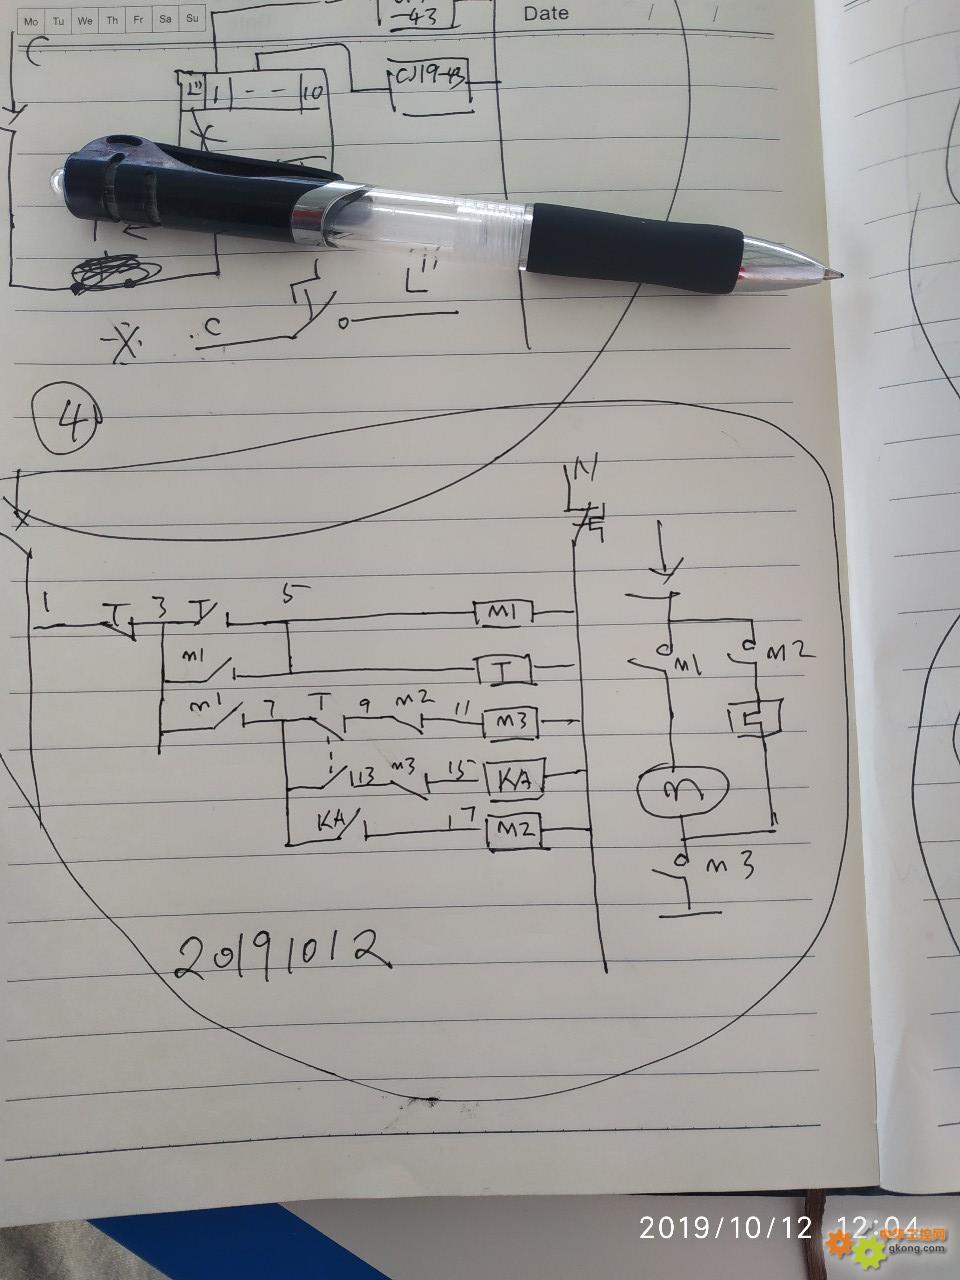 Mo Tu We Th Fr Sa Su
Date / /
-43
C
1 -- 10
CJ19-43
C
4
N
1 T 3 5 M1
m1 T
m1 7 T 9 m2 11 m3
13 m3 15 KA
KA 17 M2
m1 m2
m
m3
20191012
2019/10/12 12:04
中华工控网
gkong.com